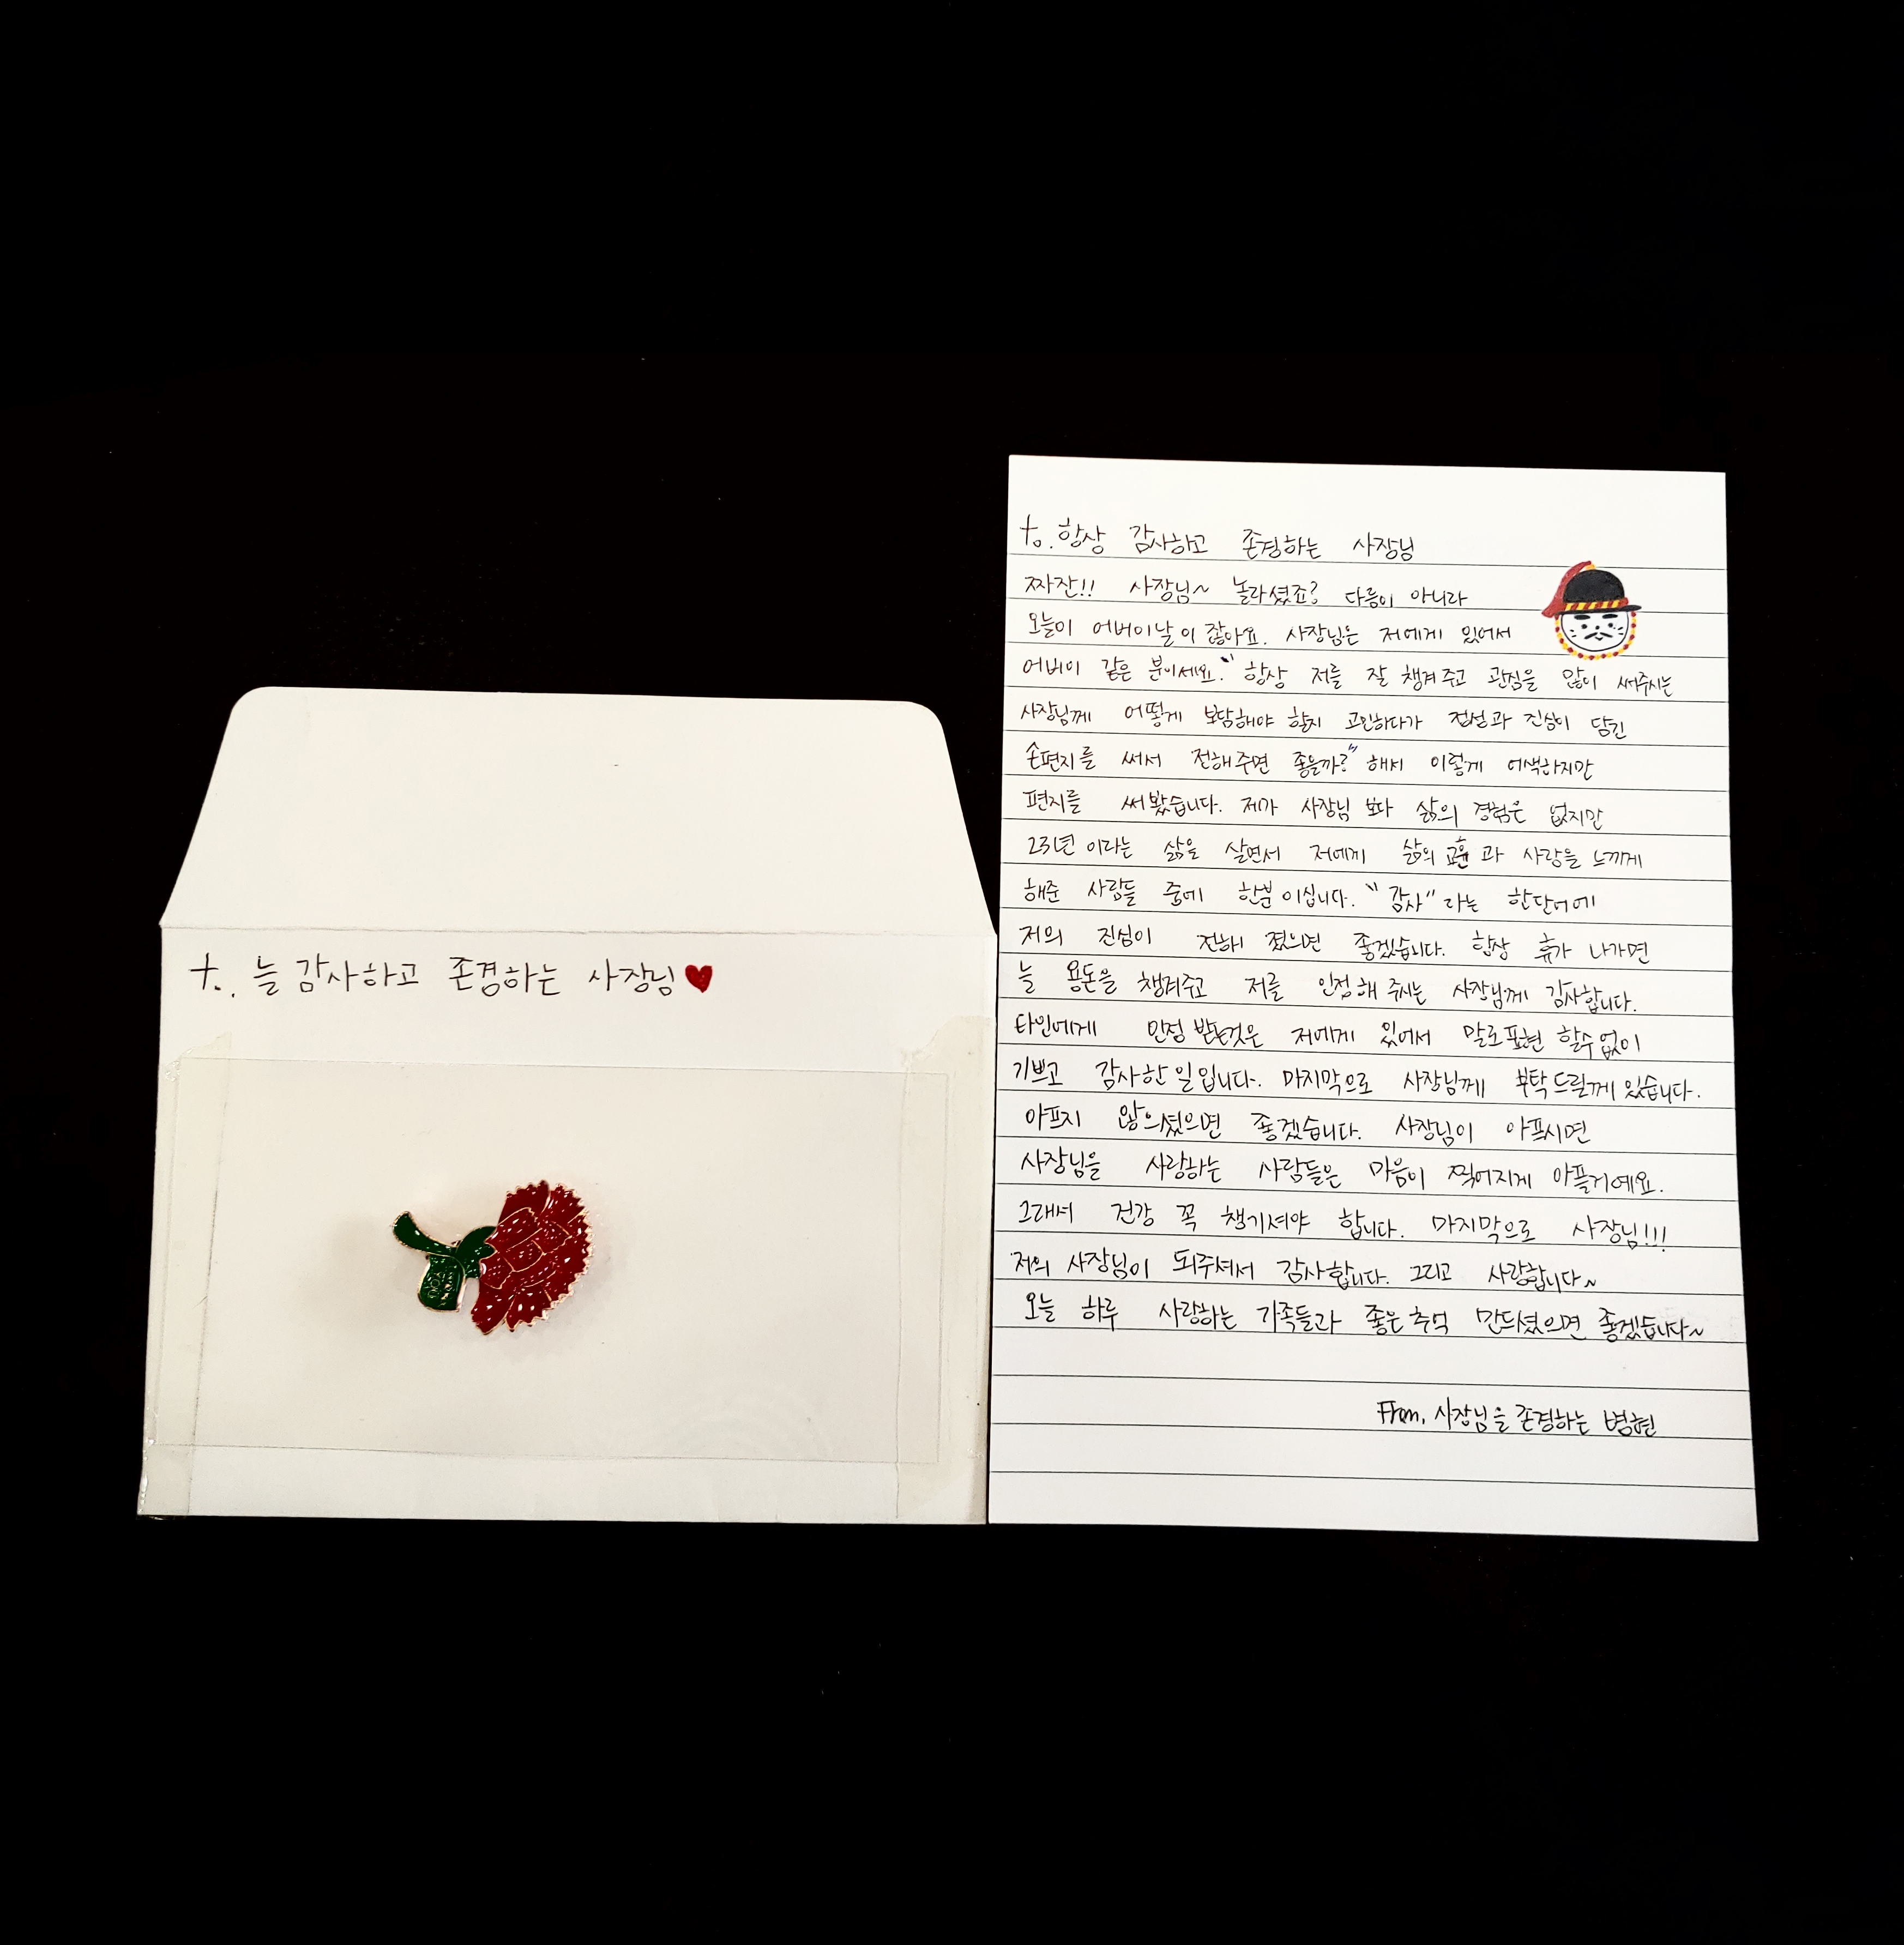 to. 늘 감사하고 존경하는 사장님♥
to. 항상 감사하고 존경하는 사장님
짜잔!! 사장님~ 놀라셨죠? 다름이 아니라
오늘이 어버이날이 잖아요. 사장님은 저에게 있어서
어버이 같은 분이세요. "항상 저를 잘 챙겨주고 관심을 많이 써주시는
사장님께 어떻게 보답해야 할지 고민하다가 정성과 진심이 담긴
손편지를 써서 전해주면 좋을까?" 해서 이렇게 어색하지만
편지를 써봤습니다. 제가 사장님 보다 삶의 경험은 없지만
23년 이라는 삶을 살면서 저에게 삶의 교훈과 사랑을 느끼게
해준 사람들 중에 한분 이십니다. "감사"라는 한단어에
저의 진심이 전해 졌으면 좋겠습니다. 항상 휴가 나가면
늘 용돈을 챙겨주고 저를 인정해 주시는 사장님께 감사합니다.
타인에게 인정 받는것은 저에게 있어서 말로표현 할수없이
기쁘고 감사한 일입니다. 마지막으로 사장님께 부탁드릴께 있습니다.
아프지 않으셨으면 좋겠습니다. 사장님이 아프시면
사장님을 사랑하는 사람들은 마음이 찢어지게 아플거예요.
그래서 건강 꼭 챙기셔야 합니다. 마지막으로 사장님!!!
저의 사장님이 되주셔서 감사합니다. 그리고 사랑합니다~
오늘 하루 사랑하는 가족들과 좋은추억 만드셨으면 좋겠습니다~
From. 사장님을 존경하는 범현